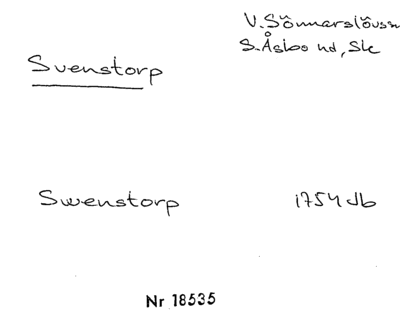 V. Sönnarslövs sn
S. Åsbo hd, Sk
Svenstorp
Swenstorp 1754 Jb
Nr 18535